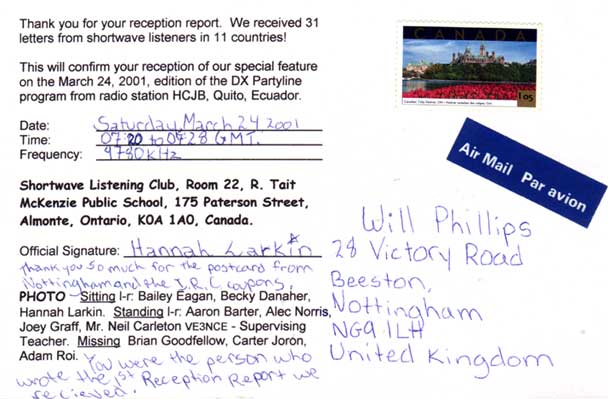 Thank you for your reception report. We received 31
letters from shortwave listeners in 11 countries!
This will confirm your reception of our special feature
on the March 24, 2001, edition of the DX Partyline
program from radio station HCJB, Quito, Ecuador.
Date: Saturday March 24 2001
Time: 0720 to 0728 GMT.
Frequency: 9780 KHz
Shortwave Listening Club, Room 22, R. Tait
McKenzie Public School, 175 Paterson Street,
Almonte, Ontario, K0A 1A0, Canada.
Official Signature: Hannah Larkin
Thank you so much for the postcard from
Nottingham and the I.R.C coupons.
PHOTO - Sitting l-r: Bailey Eagan, Becky Danaher,
Hannah Larkin. Standing l-r: Aaron Barter, Alec Norris,
Joey Graff, Mr. Neil Carleton VE3NCE - Supervising
Teacher. Missing Brian Goodfellow, Carter Joron,
Adam Roi. You were the person who
wrote the 1st Reception Report we
recieved.
CANADA
105
Air Mail Par avion
Will Phillips
28 Victory Road
Beeston,
Nottingham
NG9 1LH
United Kingdom